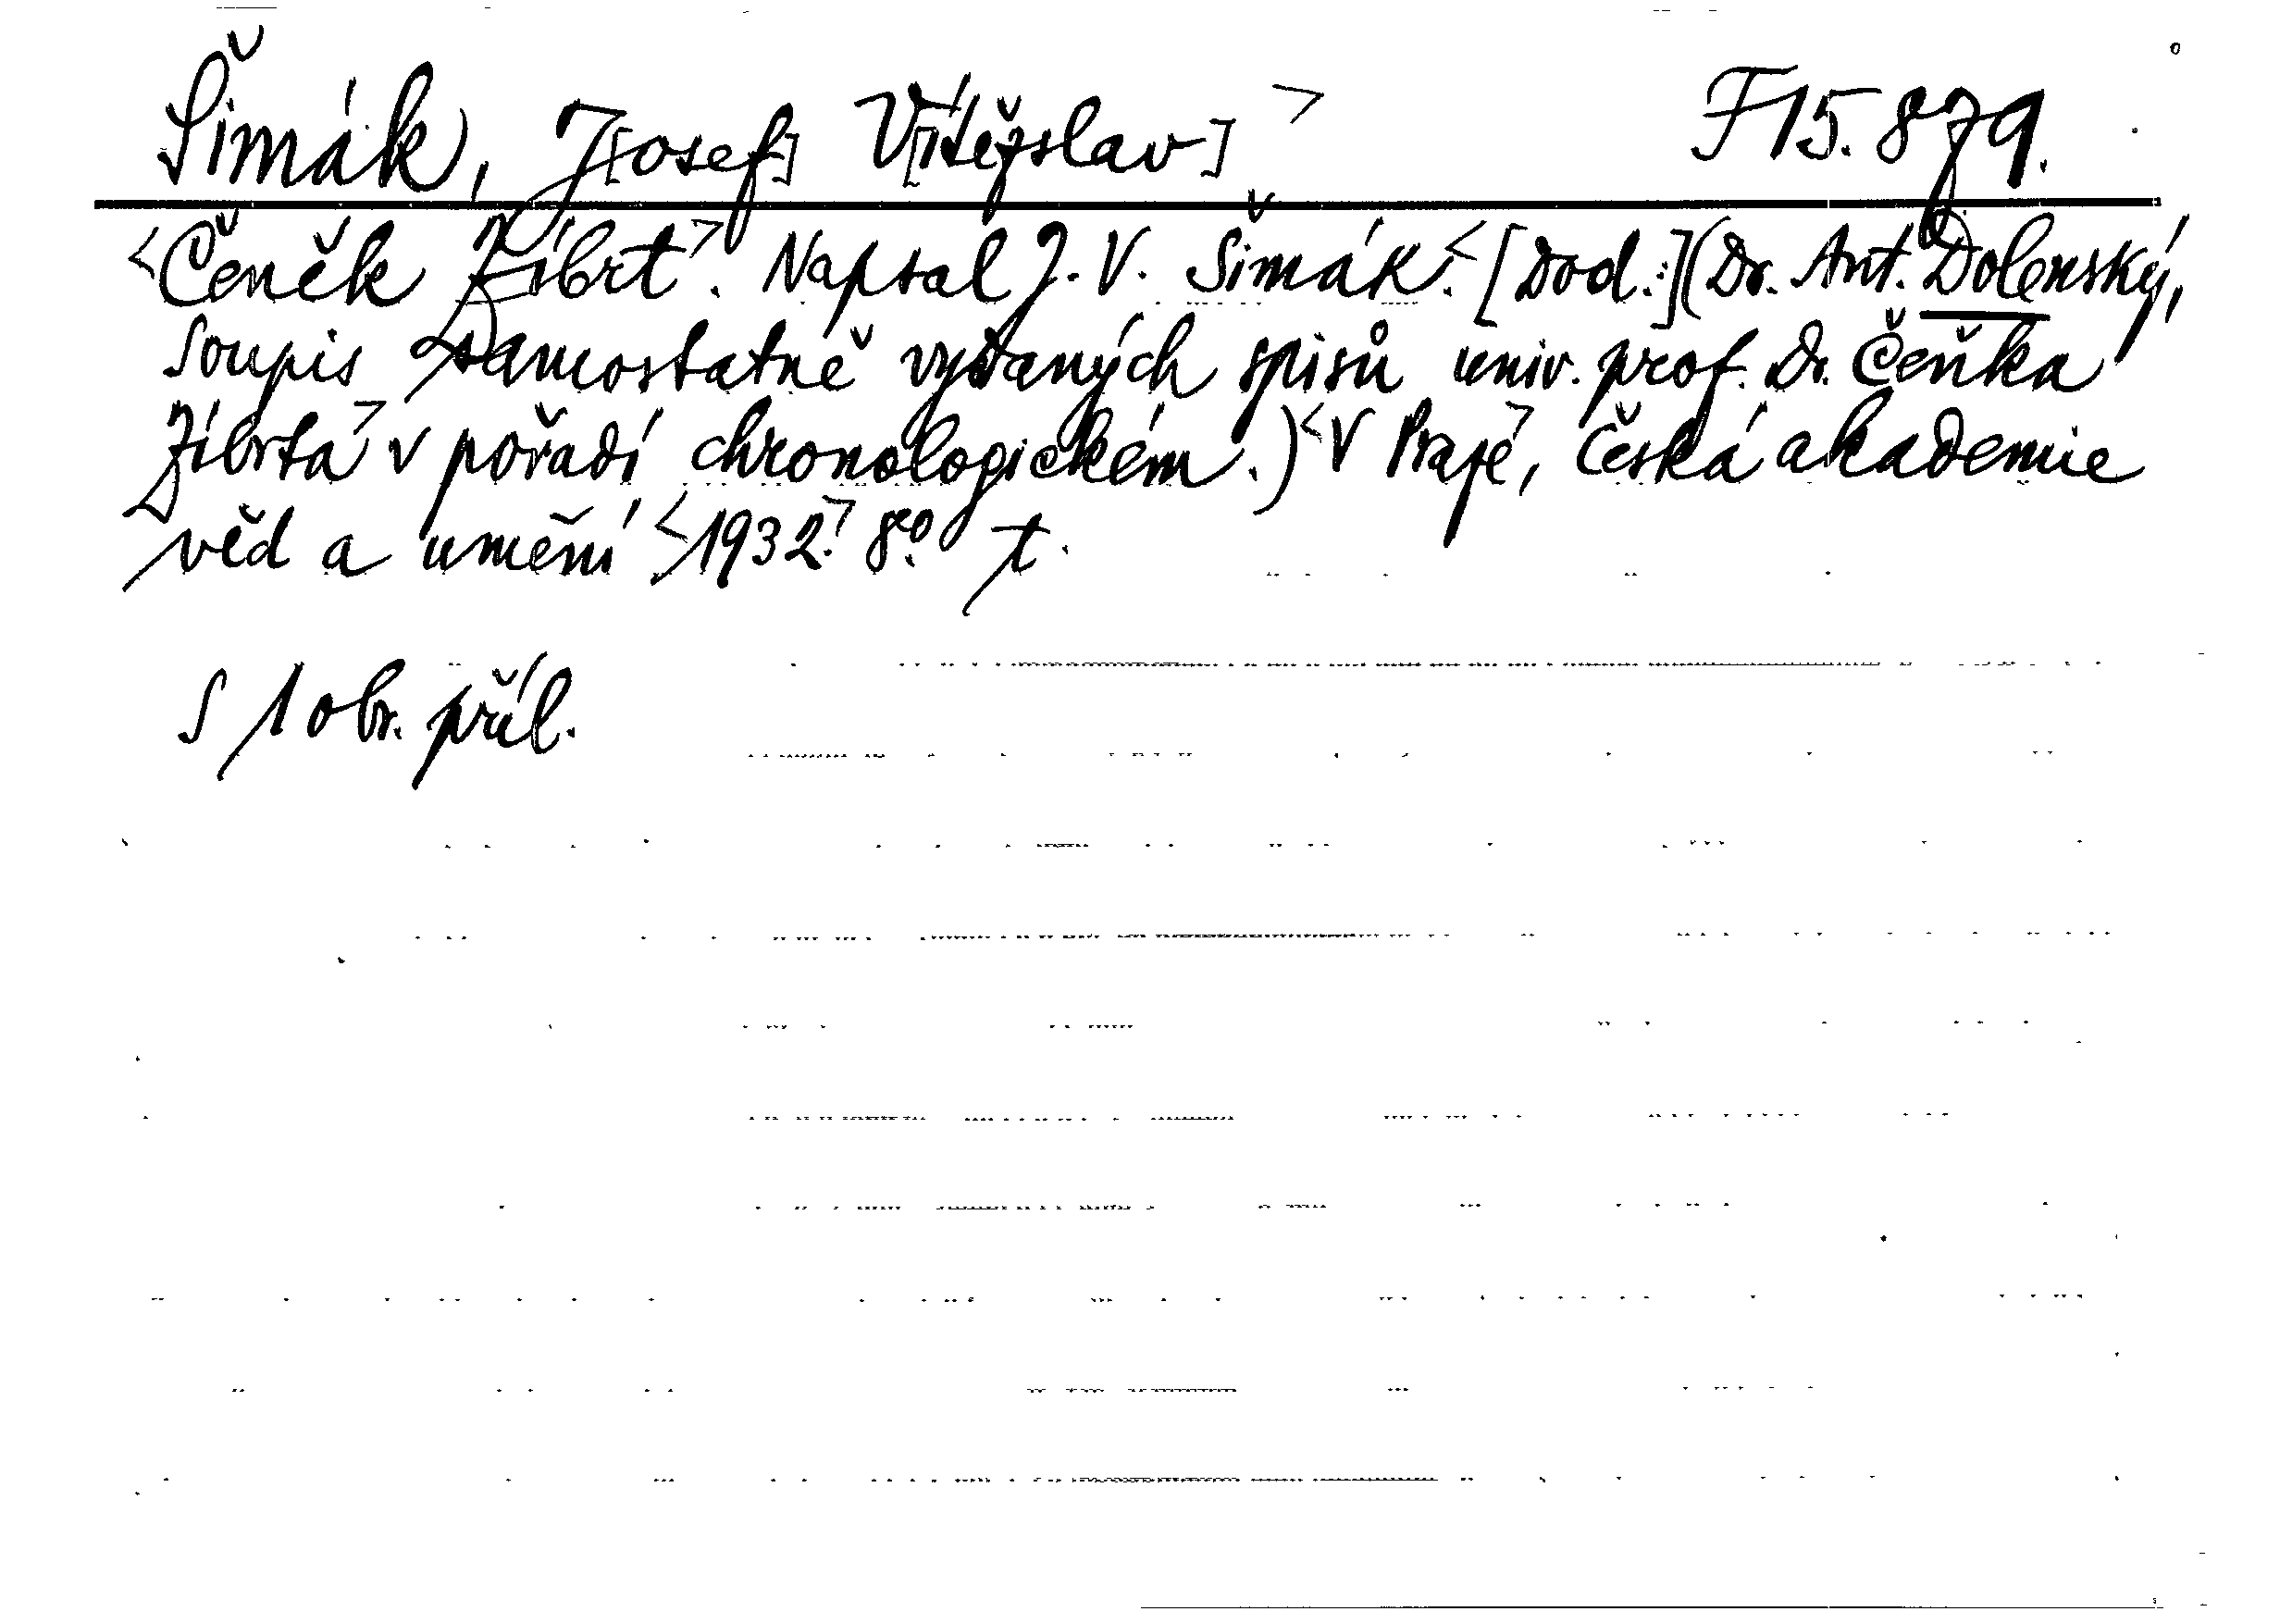 Šimák, J[osef] V[ítězslav] > F 15.879.
<Čeněk Zíbrt>. Napsal J. V. Šimák.< [Dod.:] (Dr. Ant. Dolenský,
Soupis samostatně vydaných spisů univ. prof. Dr. Čeňka
Zíbrta> v pořadí chronologickém.) <V Praze>, Česká akademie
věd a umění <1932.> 8°. t.
S 1 obr. příl.